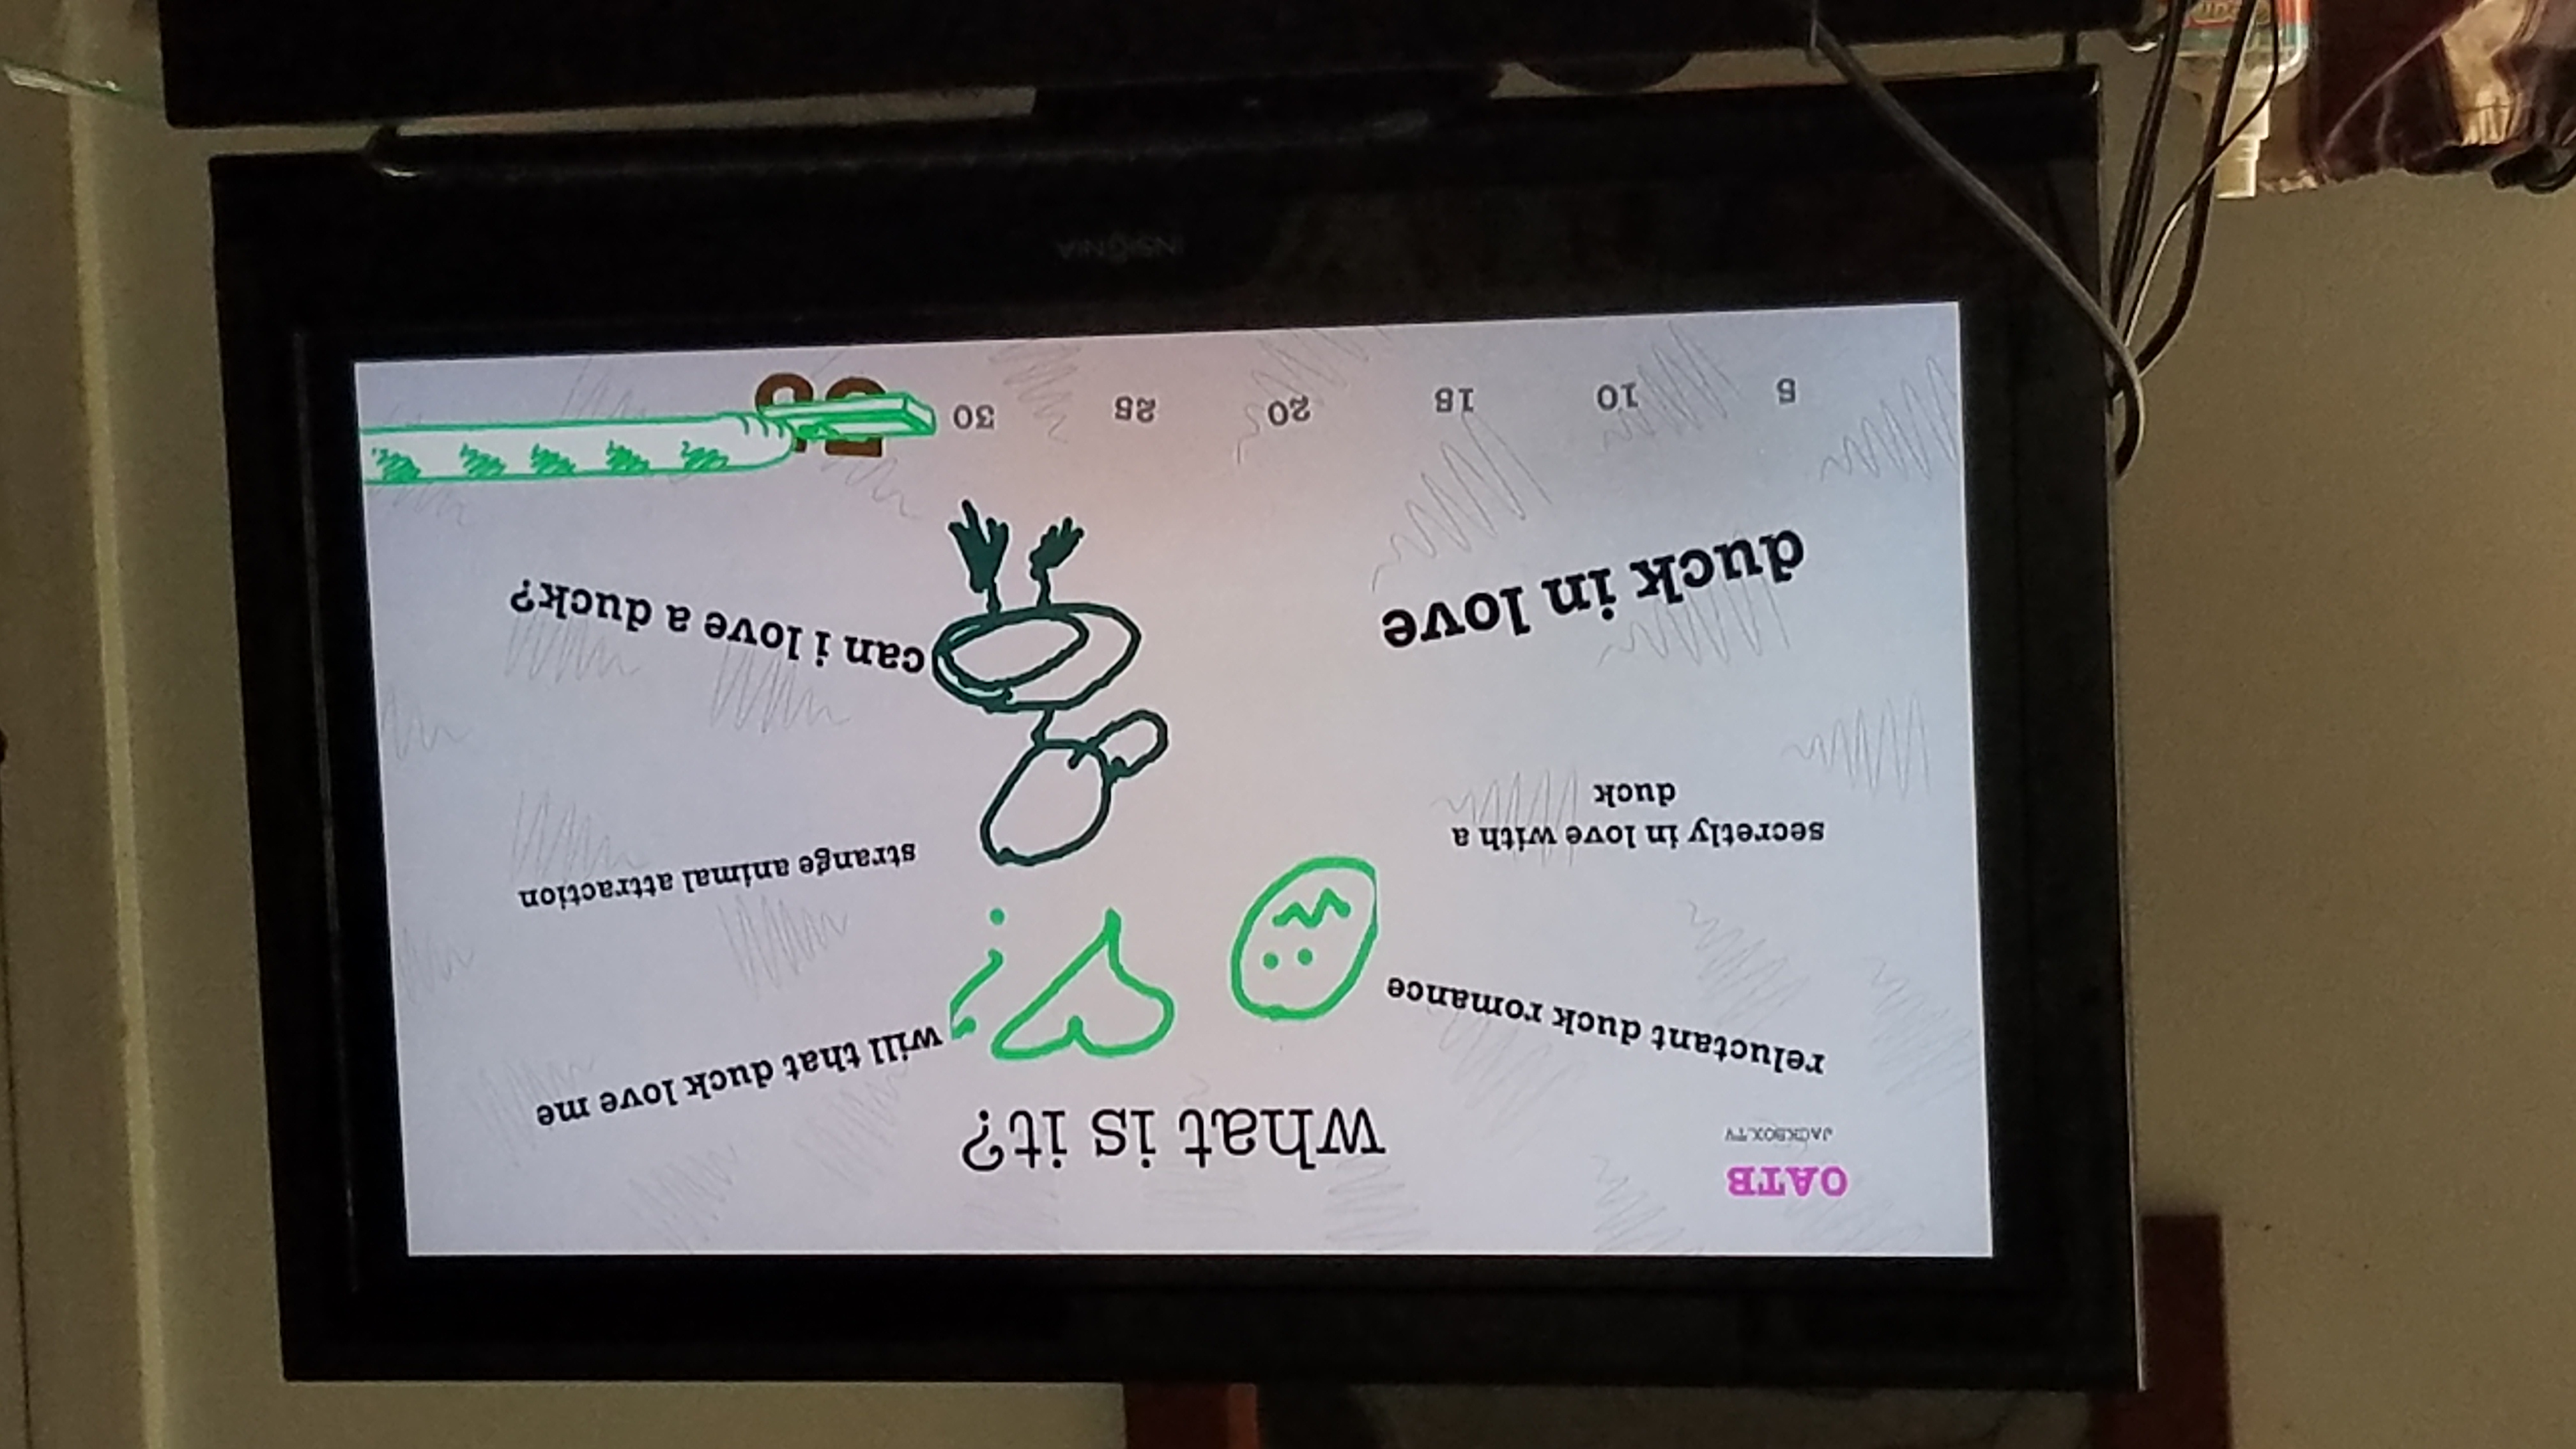 OATB
JACKBOX.TV
what is it?
reluctant duck romance
will that duck love me
secretly in love with a
duck
strange animal attraction
duck in love
can i love a duck?
5
10
15
20
25
30
INSIGNIA